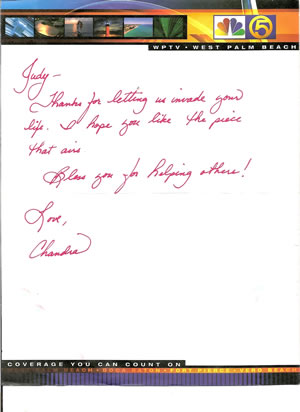 5
WPTV • WEST PALM BEACH
Judy–
Thanks for letting us invade your
life. I hope you like the piece
that airs
Bless you for helping others!
Love,
Chandra
COVERAGE YOU CAN COUNT ON
PALM BEACH • BOCA RATON • FORT PIERCE • VERO BEACH